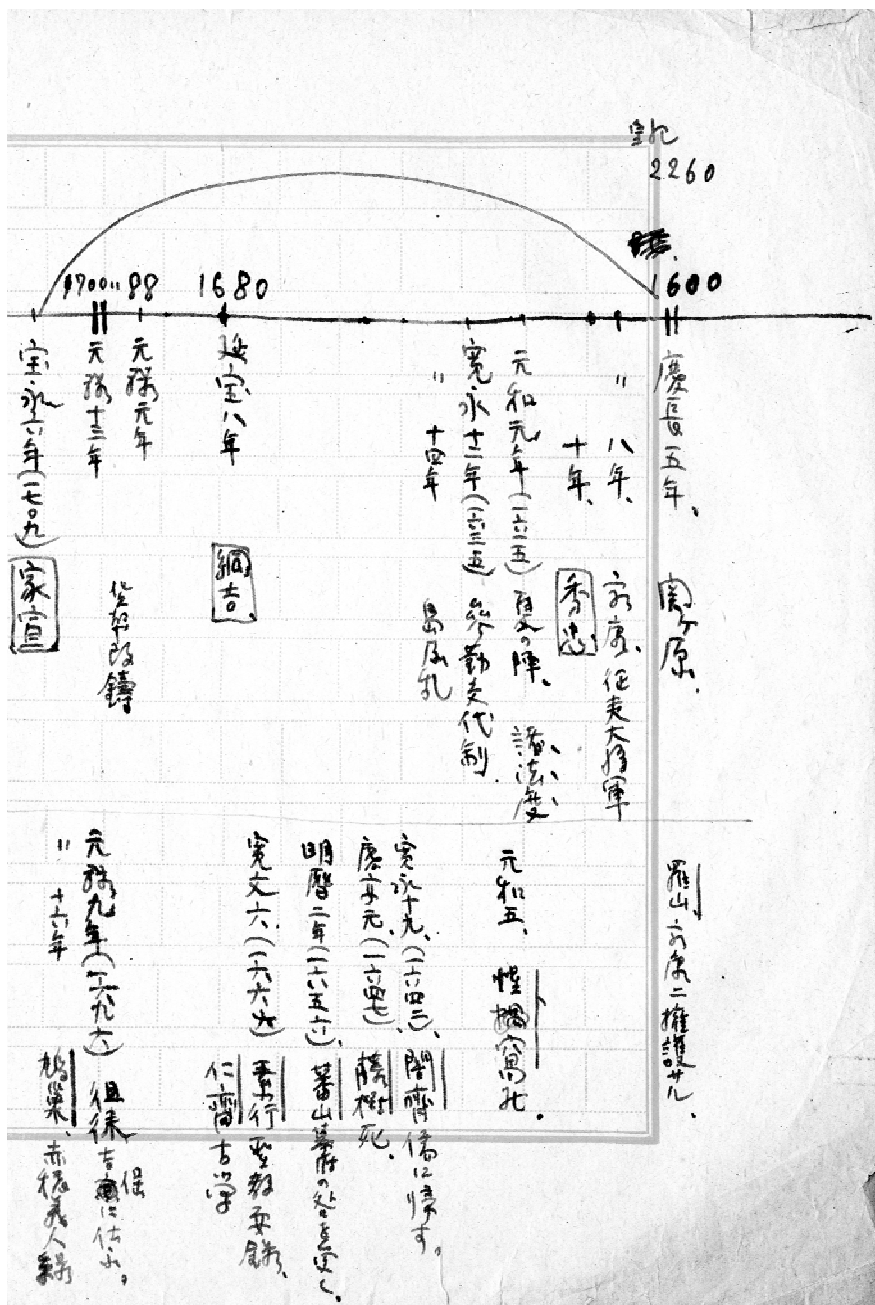 皇紀
2260
1600
1680
〃88
1700
慶長五年、関ヶ原、
〃八年、家康、征夷大将軍
十年、秀忠
元和元年(一六一五)夏の陣、諸法度
寛永十二年(一六三五)参勤交代制
〃十四年 島原乱
延宝八年 綱吉、
元禄元年
元禄十三年 貨幣改鋳
宝永六年(一七〇九)家宣
羅山 家康ニ擁護サル、
元和五、惺窩死。
寛永十九、(一六四二)、闇斎儒に帰す。
慶安元、(一六四七)、藤樹死、
明暦二年(一六五六)、蕃山幕府の咎を受く、
寛文六、(一六六六)素行聖教要録、
仁斎古学
元禄九年(一六九六)徂徠吉保に仕ふ。
〃十六年 鳩巣、赤穂義人録